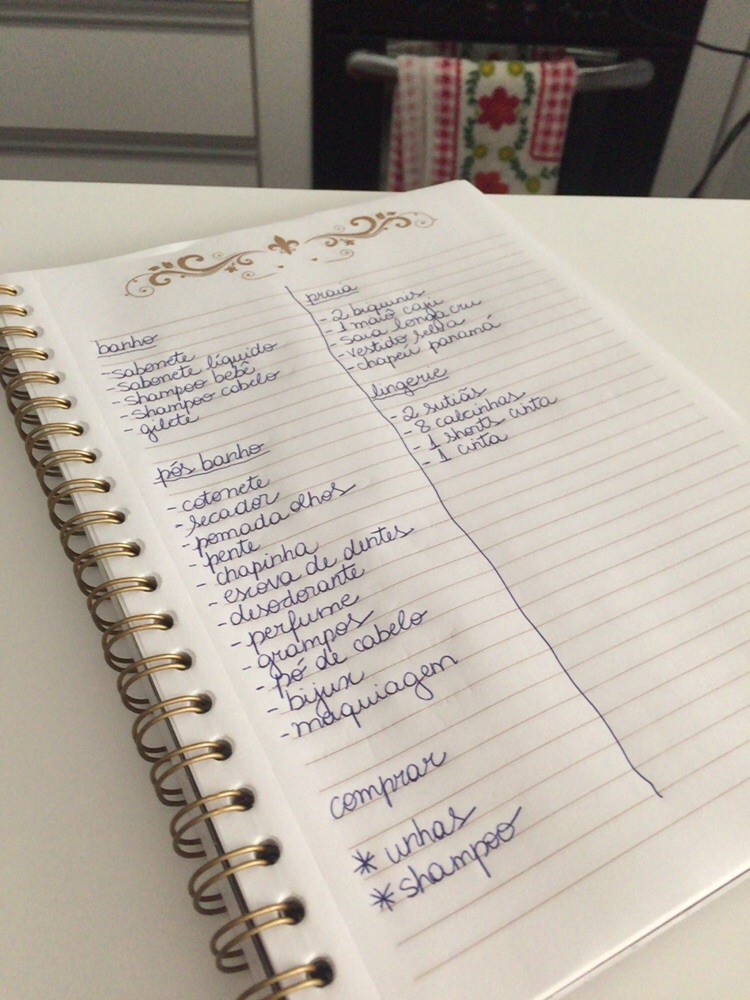 banho
- sabonete
- sabonete líquido
- shampoo bebê
- shampoo cabelo
- gilete
pós banho
- cotonete
- secador
- pomada olhos
- pente
- chapinha
- escova de dentes
- desodorante
- perfume
- grampos
- pó de cabelo
- bijux
- maquiagem
comprar
* unhas
* shampoo
praia
- 2 biquinis
- 1 maiô caju
- saia longa cru
- vestido selva
- chapéu panamá
lingerie
- 2 sutiãs
- 8 calcinhas
- 1 shorts cinta
- 1 cinta